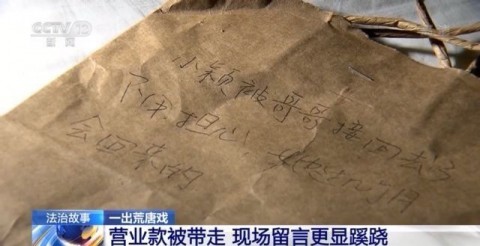 CCTV 13
新闻
小颖被哥哥接回去了
不用担心
会回来的
法治故事
一出荒唐戏
营业款被带走 现场留言更显蹊跷